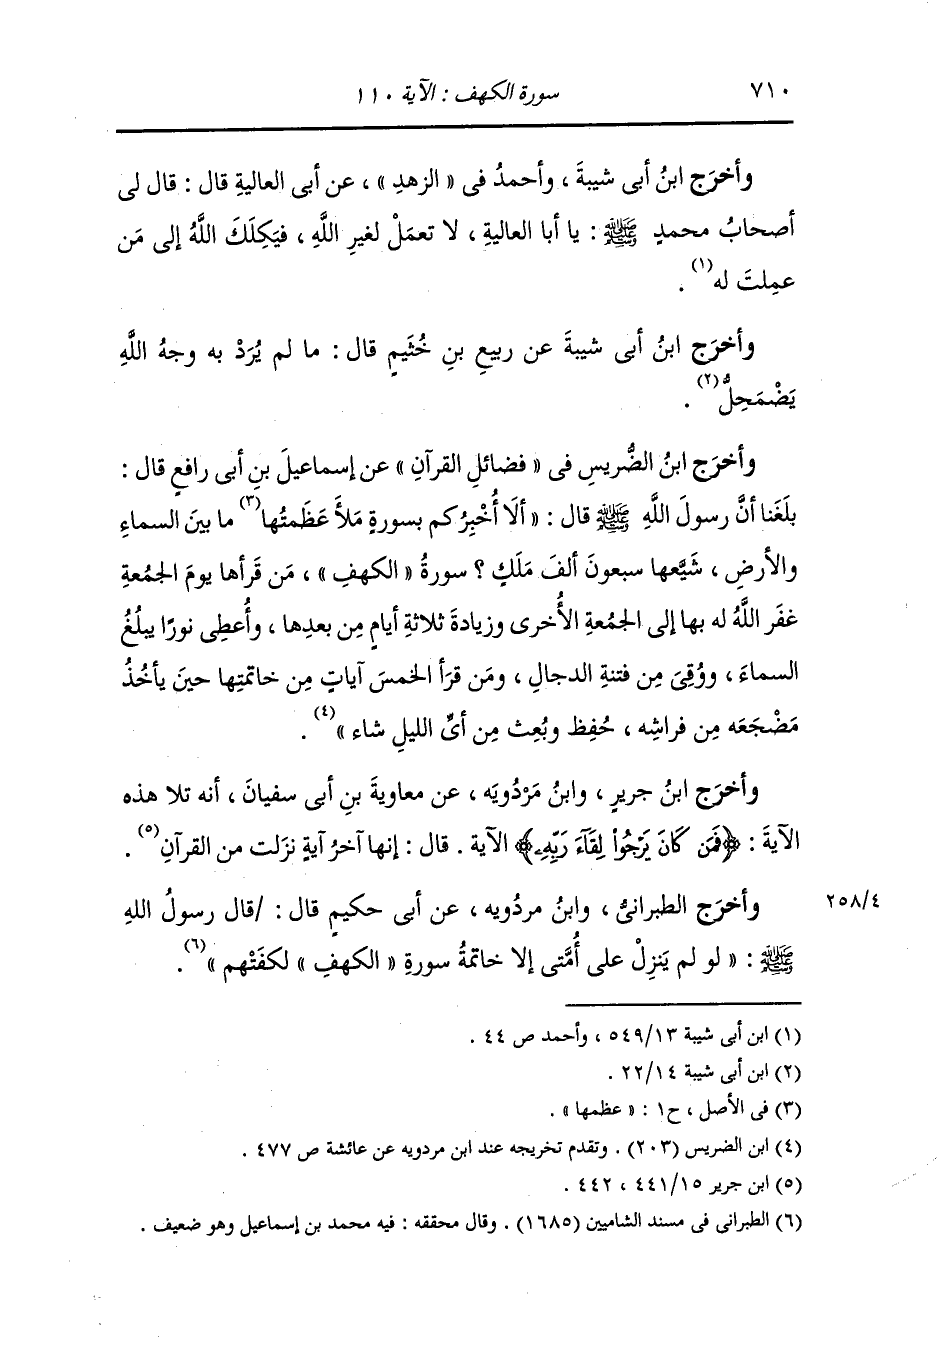 ٧١٠
سورة الكهف : الآية ١١٠
وأخرَج ابنُ أبى شيبةَ ، وأحمدُ فى « الزهدِ » ، عن أبى العاليةِ قال : قال لى
أصحابُ محمدٍ ﷺ : يا أبا العاليةِ ، لا تعمَلْ لغيرِ اللَّهِ ، فيَكِلَكَ اللَّهُ إلى مَن
عمِلتَ له(١) .
وأخرَج ابنُ أبى شيبةَ عن ربيعِ بنِ خُثَيمٍ قال : ما لم يُرَدْ به وجهُ اللَّهِ
يَضْمَحِلُّ(٢) .
وأخرَج ابنُ الضُّريسِ فى « فضائلِ القرآنِ » عن إسماعيلَ بنِ أبى رافعٍ قال :
بلَغَنا أنَّ رسولَ اللَّهِ ﷺ قال : « ألَا أُخْبِرُكم بسورةٍ مَلأَ عَظَمتُها(٣) ما بينَ السماءِ
والأرضِ ، شَيَّعها سبعونَ ألفَ مَلَكٍ ؟ سورةُ « الكهفِ » ، مَن قرَأها يومَ الجمُعةِ
غفَر اللَّهُ له بها إلى الجمُعةِ الأُخرى وزيادةَ ثلاثةِ أيامٍ مِن بعدِها ، وأُعطِى نورًا يبلُغُ
السماءَ ، ووُقِىَ مِن فتنةِ الدجالِ ، ومَن قرَأ الخمسَ آياتٍ مِن خاتمتِها حينَ يأخُذُ
مَضْجَعَه مِن فراشِه ، حُفِظ وبُعِث مِن أىِّ الليلِ شاء »(٤) .
وأخرَج ابنُ جريرٍ ، وابنُ مَرْدُويَه ، عن معاويةَ بنِ أبى سفيانَ ، أنه تلا هذه
الآيةَ : ﴿فَمَن كَانَ يَرْجُواْ لِقَآءَ رَبِّهِۦ﴾ الآية . قال : إنها آخرُ آيةٍ نزَلت من القرآنِ(٥) .
وأخرَج الطبرانىُّ ، وابنُ مردُويه ، عن أبى حكيمٍ قال : /قال رسولُ اللهِ
٢٥٨/٤
ﷺ : « لو لم يَنزِلْ على أُمَّتى إلا خاتمةُ سورةِ « الكهفِ » لكفَتْهم »(٦) .
(١) ابن أبى شيبة ٥٤٩/١٣ ، وأحمد ص ٤٤ .
(٢) ابن أبى شيبة ٢٢/١٤ .
(٣) فى الأصل ، ح١ : « عظمها » .
(٤) ابن الضريس (٢٠٣) . وتقدم تخريجه عند ابن مردويه عن عائشة ص ٤٧٧ .
(٥) ابن جرير ٤٤١/١٥ ، ٤٤٢ .
(٦) الطبرانى فى مسند الشاميين (١٦٨٥) . وقال محققه : فيه محمد بن إسماعيل وهو ضعيف .